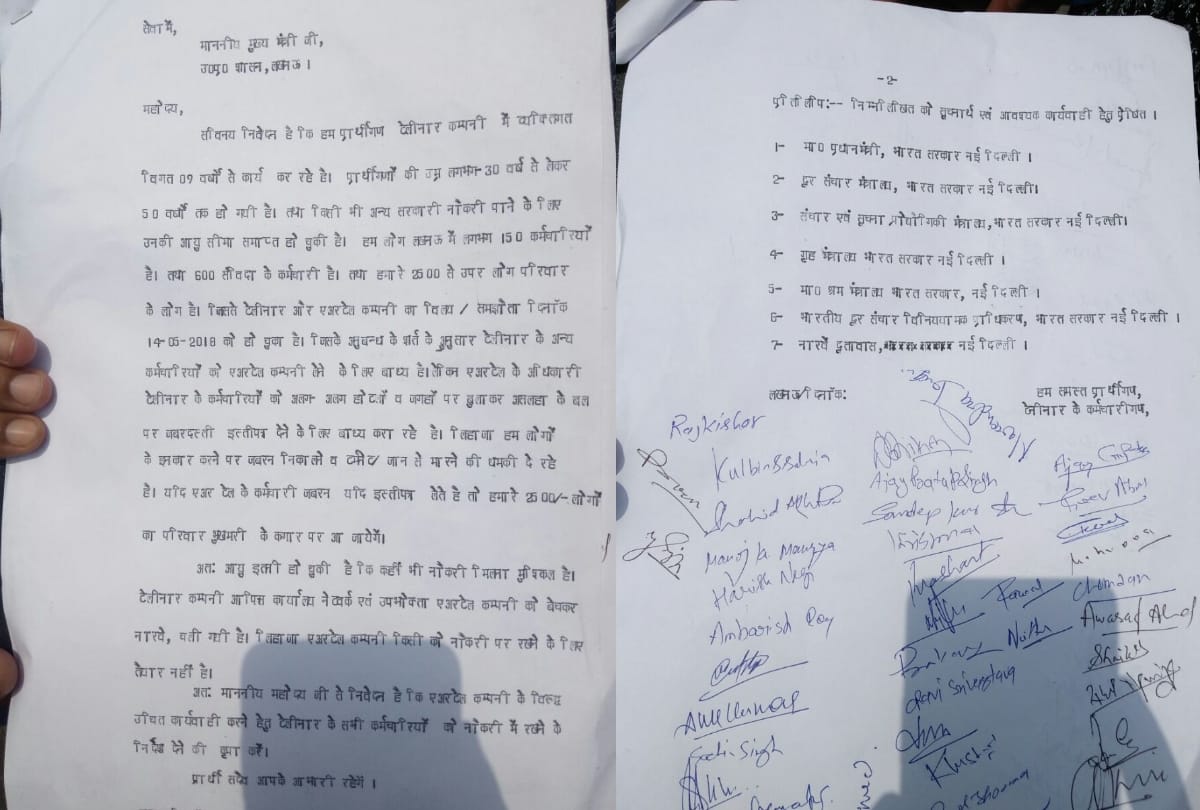 सेवा में,
माननीय मुख्य मंत्री जी,
उ0प्र0 शासन, लखनऊ ।
महोदय,
सविनय निवेदन है कि हम प्रार्थीगण टेलीनार कम्पनी में व्यक्तिगत
विगत 09 वर्षों से कार्य कर रहे है। प्रार्थीगणों की उम्र लगभग- 30 वर्ष से लेकर
50 वर्षों तक हो गयी है। तथा किसी भी अन्य सरकारी नौकरी पाने के लिए
उनकी आयु सीमा समाप्त हो चुकी है। हम लोग लखनऊ में लगभग 150 कर्मचारियों
है। तथा 600 संविदा के कर्मचारी है। तथा हमारे 2500 से उपर लोग परिवार
के लोग है। जिससे टेलीनार और एअरटेल कम्पनी का विलय / समझौता दिनॉक
14-05-2018 को हो चुका है। जिसके अनुबन्ध के शर्त के अनुसार टेलीनार के अन्य
कर्मचारियों को एअरटेल कम्पनी लेने के लिए बाध्य है। लेकिन एअरटेल के अधिकारी
टेलीनार के कर्मचारियों को अलग- अलग होटलों व जगहों पर बुलाकर असलहा के बल
पर जबरदस्ती इस्तीपत्र देने के लिए बाध्य करा रहे है। लिहाजा हम लोगों
के इनकार करने पर जबरन निकालने व टर्मीनेट/ जान से मारने की धमकी दे रहे
है। यदि एअर टेल के कर्मचारी जबरन यदि इस्तीपत्र लेते है तो हमारे 2500/- लोगों
का परिवार भुखमरी के कगार पर आ जायेगें।
अत: आयु इतनी हो चुकी है कि कहीं भी नौकरी मिलना मुश्किल है।
टेलीनार कम्पनी आफिस कार्यालय नेटवर्क एवं उपभोक्ता एअरटेल कम्पनी को बेचकर
नारवे, चली गयी है। लिहाजा एअरटेल कम्पनी किसी को नौकरी पर रखने के लिए
तैयार नहीं है।
अत: माननीय महोदय जी से निवेदन है कि एअरटेल कम्पनी के विरूद्ध
उचित कार्यवाही करने हेतु टेलीनार के सभी कर्मचारियों को नौकरी में रखने के
निर्देश देने की कृपा करें।
प्रार्थी सदैव आपके आभारी रहेगें ।
-2-
प्रतिलिपि:-- निम्नलिखित को सूचनार्थ एवं आवश्यक कार्यवाही हेतु प्रेषित ।
1- मा0 प्रधानमंत्री, भारत सरकार नई दिल्ली ।
2- दूर संचार मंत्रालय, भारत सरकार नई दिल्ली।
3- संचार एवं सूचना प्रौयोगिकी मंत्रालय, भारत सरकार नई दिल्ली।
4- गृह मंत्रालय भारत सरकार नई दिल्ली ।
5- मा0 श्रम मंत्रालय भारत सरकार, नई दिल्ली ।
6- भारतीय दूर संचार विनियामक प्राधिकरण, भारत सरकार नई दिल्ली ।
7- नारवे दूतावास, नई दिल्ली ।
लखनऊ/दिनॉक:
हम समस्त प्रार्थीगण,
टेलीनार के कर्मचारीगण,
Rajkishor
Shahid
Manoj K Maurya
Harish Negi
Ambarish Roy
Singh
Ajay Pratap Singh
Sandeep
Prashant
Rawat
Nitin
Ravi Srivastava
Sharma
Ajay Gupta